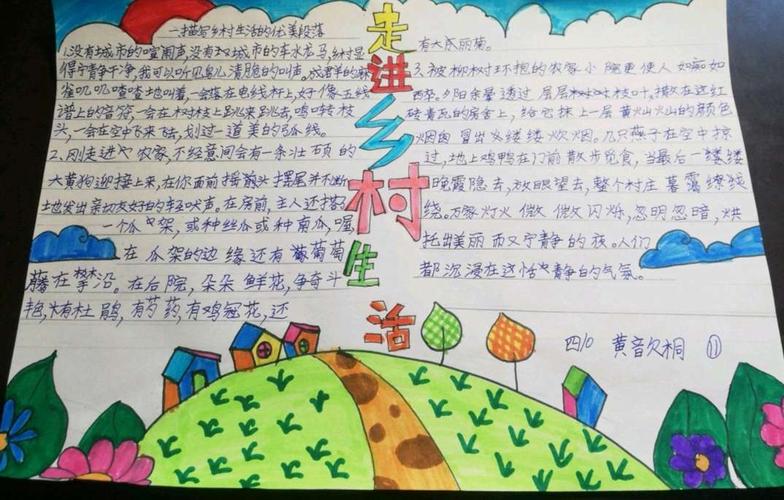 走进乡村生活
一描写乡村生活的优美段落
1.没有城市的喧闹声,没有城市的车水马龙,乡村显
得宁静干净,我可以听见鸟儿清脆的叫声,成群的麻
雀叽叽喳喳地叫着,一会落在电线杆上,好像五线
谱上的音符,一会在树枝上跳来跳去,鸣啭枝
头,一会在空中飞来飞去,划过一道美的弧线。
2.刚走进农家,不经意间会有一条壮硕的
大黄狗迎接上来,在你面前摇头摆尾并不断
地发出亲切友好的轻吠声。在房前,主人还搭
一个瓜架,或种丝瓜或种南瓜,喔
在瓜架的边缘还有葡萄
藤在攀沿。在后院,朵朵鲜花,争奇斗
艳,有杜鹃,有芍药,有鸡冠花,还
有大丽菊。
3.被柳树环抱的农家小院更使人如痴如
醉。夕阳余晖透过层层树枝叶,撒在这红
砖青瓦的房舍上,给它抹上一层黄灿灿的颜色
烟囱冒出缕缕炊烟。几只燕子在空中掠
过,地上鸡鸭在门前散步觅食,当最后一缕缕
晚霞隐去,放眼望去,整个村庄暮霭缭绕
绕。万家灯火微微闪烁,忽明忽暗,烘
托出美丽而又宁静的夜。人们
都沉浸在这恬静的气氛。
四10 黄音欠桐 11